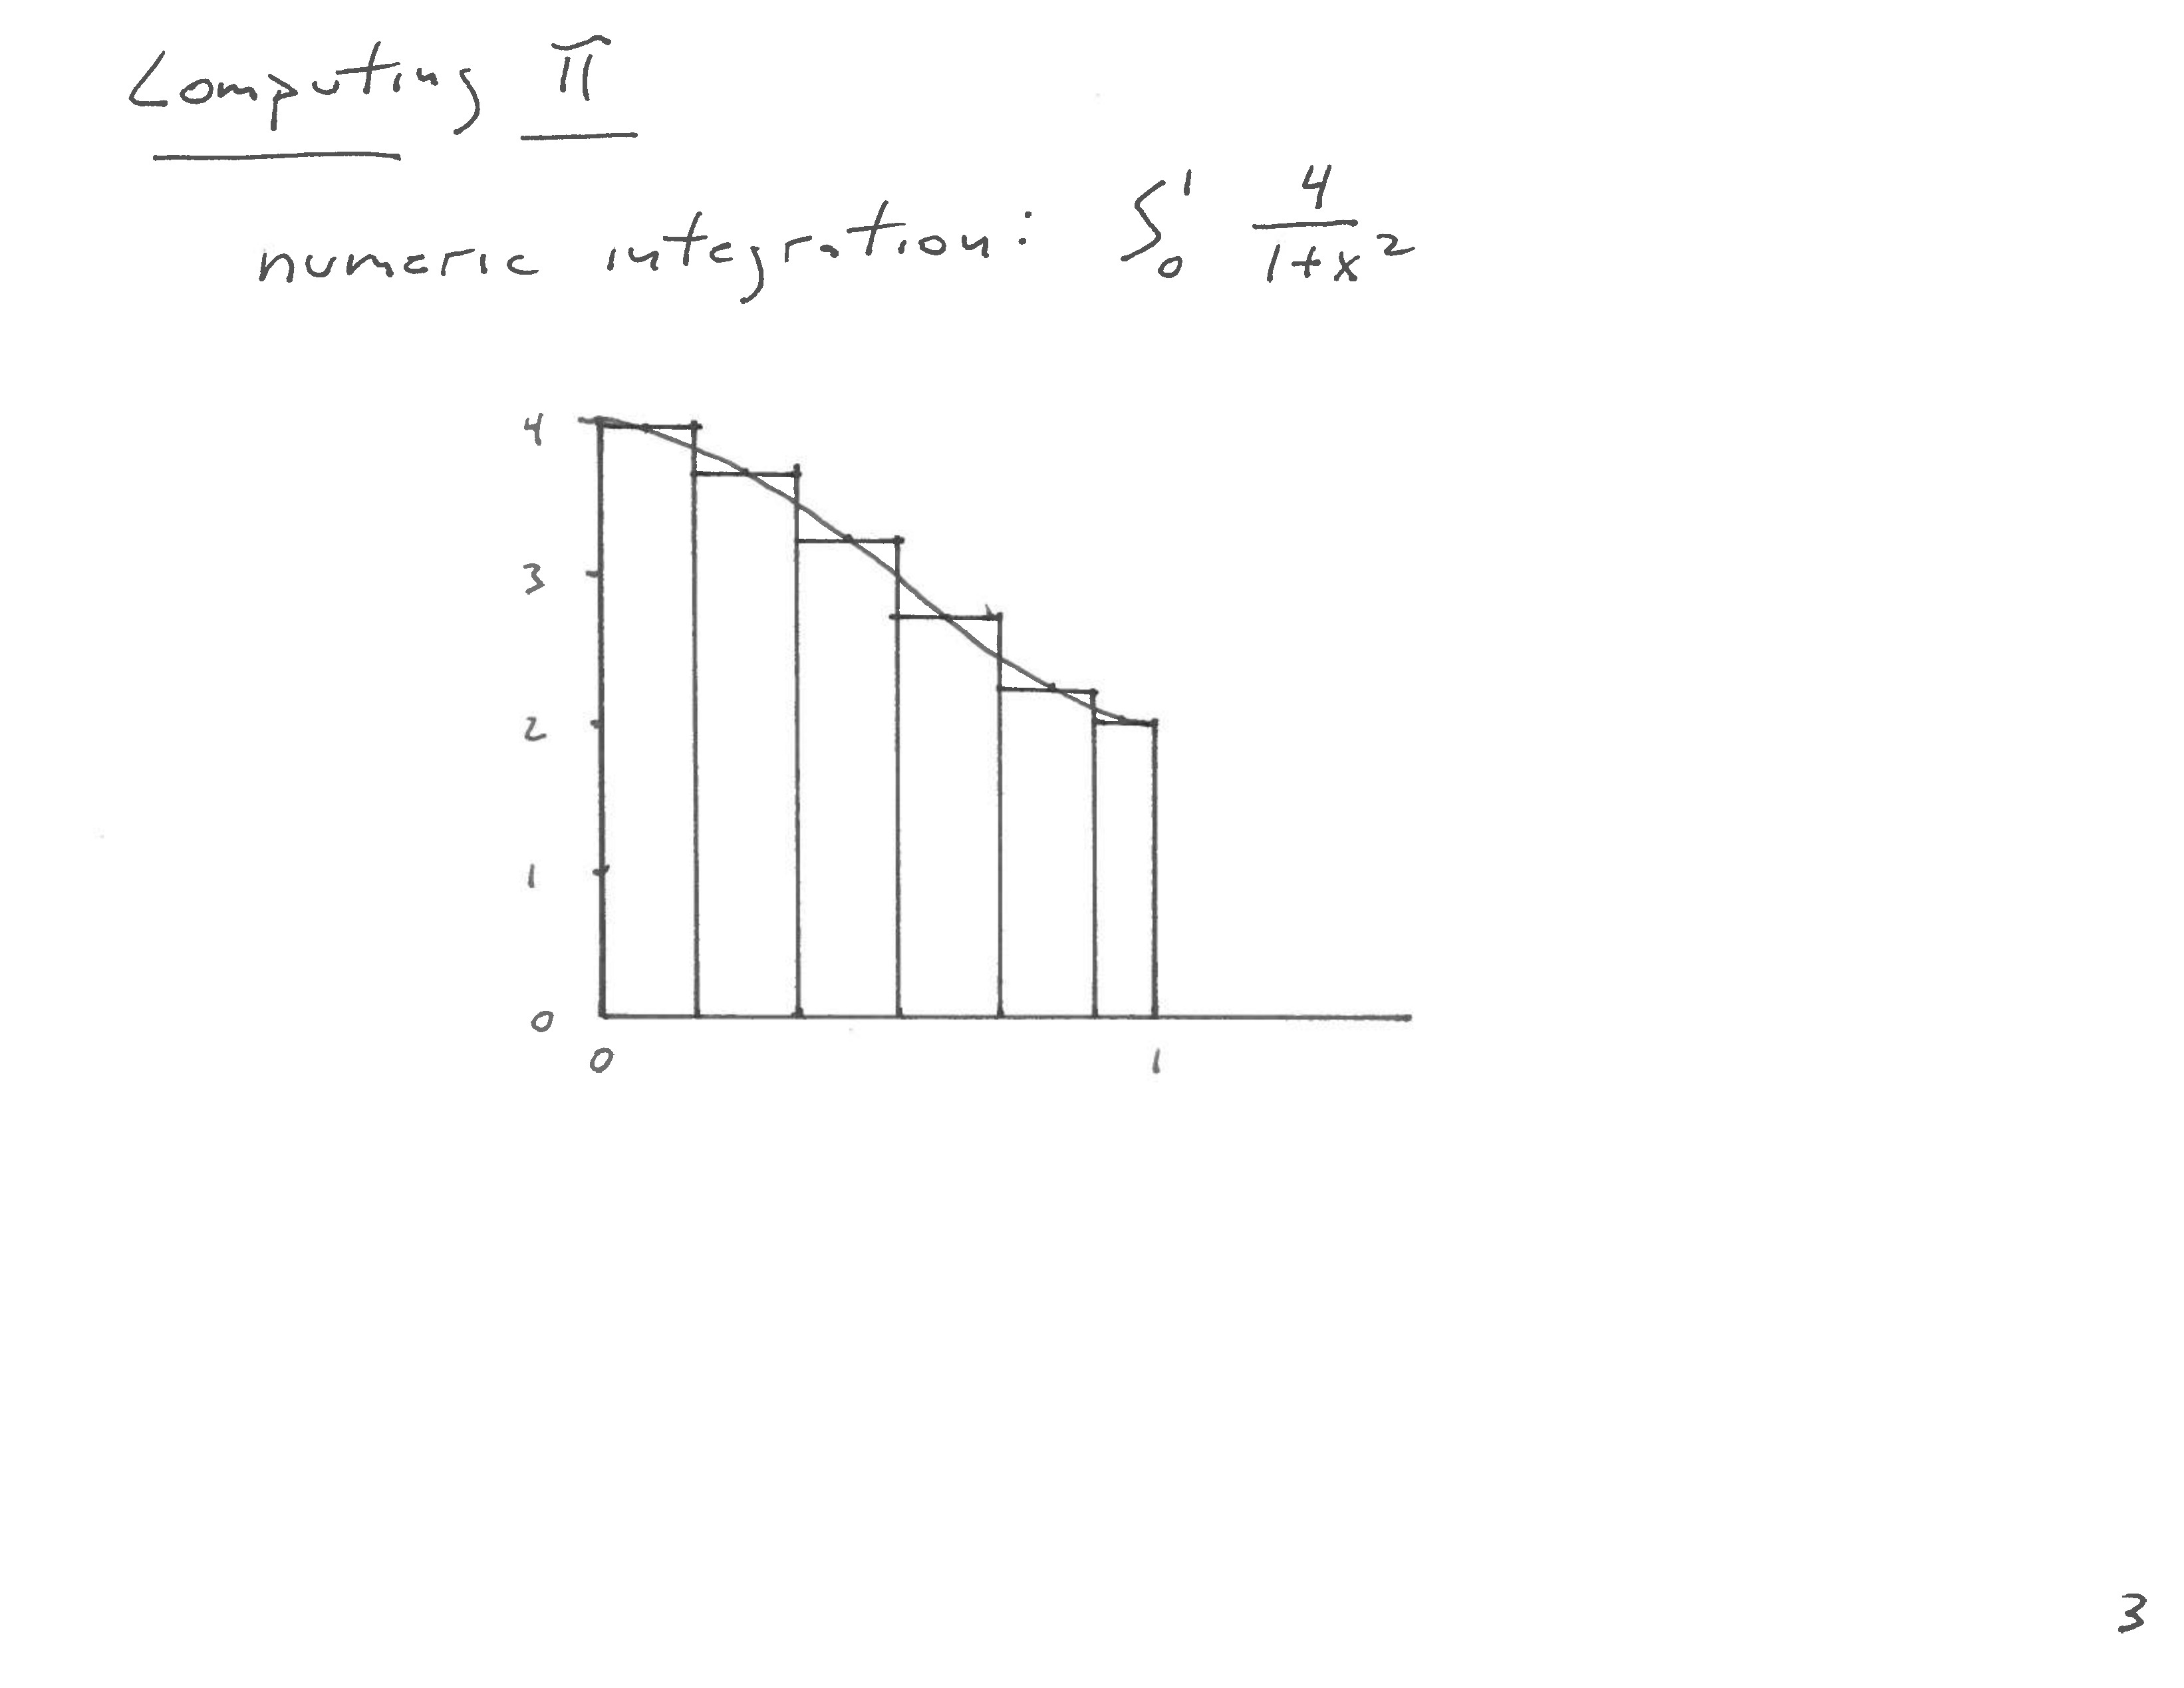 Computing π
numeric integration: ∫₀¹ 4/(1+x²)
4
3
2
1
0
0 1
3